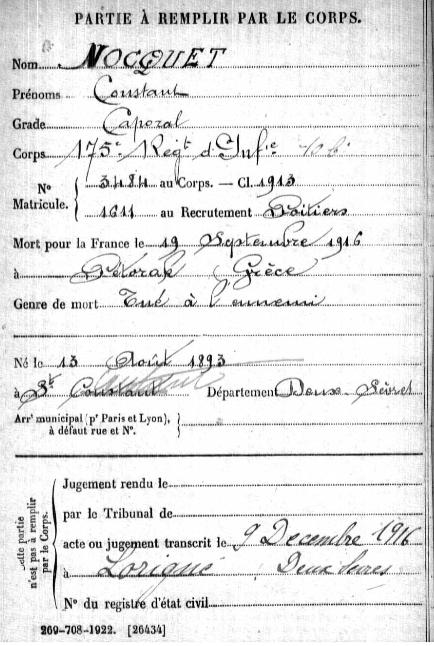 PARTIE À REMPLIR PAR LE CORPS.
Nom NOCQUET
Prénoms Constant
Grade Caporal
Corps 175e Regt d'Infie
No Matricule. 3484 au Corps. — Cl. 1913
1611 au Recrutement Poitiers
Mort pour la France le 19 Septembre 1916
à Pétorak (Grèce
Genre de mort Tué à l'ennemi
Né le 13 Août 1893
à St Constant Département Deux-Sèvres
Arrt municipal (pr Paris et Lyon),
à défaut rue et No.
Cette partie
n'est pas à remplir
par le Corps.
Jugement rendu le
par le Tribunal de
acte ou jugement transcrit le 9 Decembre 1916
à Lorigné Deux Sevres
No du registre d'état civil
269-708-1922. [26434]